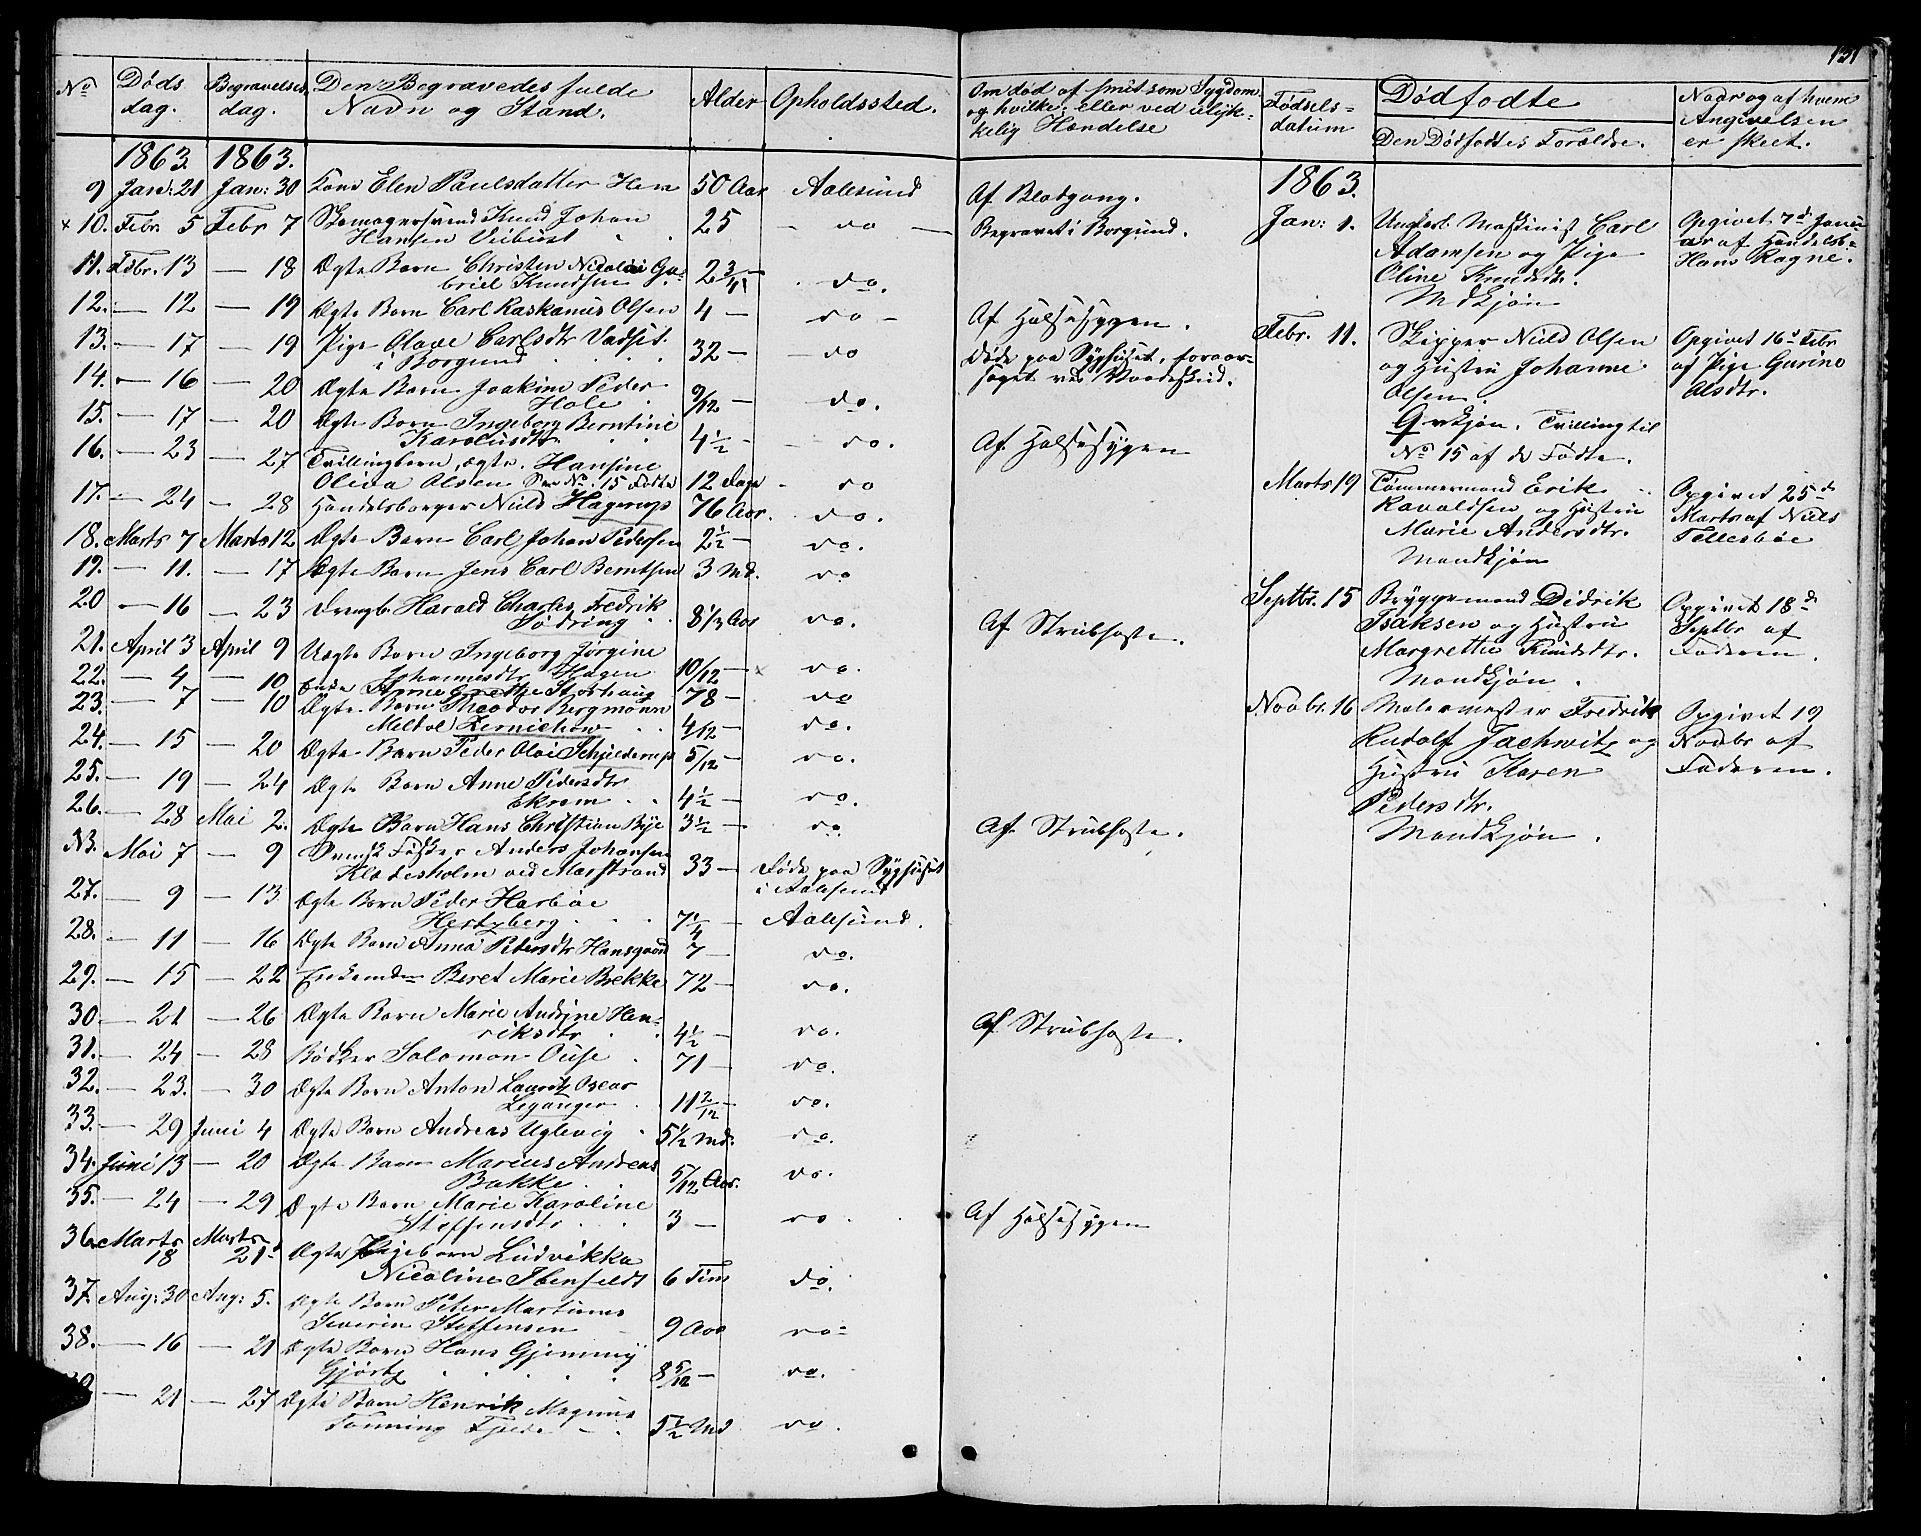 131
No Døds dag. Begravelses dag. Den Begravedes fulde Navn og Stand. Alder Opholdssted.
1863 1863.
9 Jan: 21 Jan: 30 Elen Paulsdatter 50 Aar Aalesund
× 10. Febr 5 Febr 7 Skomagersvend Knud Johan
Hansen Veibust 25 — do —
11. Febr. 13 — 18 Ægte Barn Christen Nicolai Ga-
briel Knudsen 2 3/4 — do.
12. — 12 — 19 Ægte Barn Carl Raskanus Olsen 4 — do —
13. — 17 — 19 Pige Olave Carlsdtr Vadset
i Borgund 32 — do
14. — 16 — 20 Ægte Barn Joakim Peder
Hole 9/12 — do.
15. — 17 — 20 Ægte Barn Ingeborg Berntine
Karolusdtr 4 1/2 — do.
16. — 23 — 27 Tvillingbarn, ægte, Hansine
Olida Olsen See No 15 Fødte 12 Dage — do
17. — 24 — 28 Handelsborger Nield Hagerup 76 Aar. do.
18. Marts 7 Marts 12 Ægte Barn Carl Johan Pedersen 2 1/2 — do.
19. — 11. — 17 Ægte Barn Jens Carl Berntsen 3 Md. do
20 — 16 — 23 Drengb. Harald Charles Fredrik
Sødring 8 1/3 Aar do.
21. April 3 April 9 Uægte Barn Ingeborg Jørgine
Johannesdtr Hagen 10/12 — do.
22. — 4 — 10 Enke Anne Grethe Storhaug 78 — do
23. — 7 — 10 Ægte Barn Theodor Bergmann
4/12 — do.
24. — 15 — 20 Ægte Barn Peder Olai Schjelderup 5/12 — do.
25. — 19 — 24 Ægte Barn Anne Pedersdtr
Ekrem 4 1/2 — do.
26. — 28 Mai 2. Ægte Barn Hans Christian Bye 3 1/2 — do.
NB. Mai 7 — 9 Svensk Fisker Anders Johansen
Klædesholm ved Marstrand 33 — Døde paa Sygehuset
i Aalesund
27. — 9 — 13 Ægte Barn Peder Harboe
Hertzberg 7 1/4 — Aalesund.
28. — 11 — 16 Ægte Barn Anna Petersdtr Hansgaard 7 — do.
29. — 15 — 22 Beret Marie Brekke 72 — do.
30 — 21 — 26 Ægte Barn Marie Andrine Hen-
riksdtr 4 1/2 — do.
31. — 24 — 28 Bødker Salomon Ouse 71 — do.
32. — 23. — 30 Ægte Barn Anton Lauritz Oscar
Leganger 11 2/12 — do.
33. — 29 Juni 4 Ægte Barn Andreas Uglevig 5 1/2 Md. do.
34. Juni 13 — 20 Ægte Barn Marius Andreas
Bakke 5/12 Aar. do.
35. — 24 — 29 Ægte Barn Marie Karoline
Steffensdtr 3 — do.
36 Marts 18 Marts 21d Ægte Pigebarn Ludvikka
Nicoline Ibenfeldt 6 Tim do.
37. Aug: 30 Aug: 5. Ægte Barn Peter Martinus
Severin Steffensen 9 Aar do
38. — 16 — 21 Ægte Barn Hans Gjemmy
Gjørtz 8 5/12 — do.
— 21 — 27 Ægte Barn Henrik Magnus
Tønning Fjelde 5 1/2 Md do.
Om død af smitsom Sygdom
og hvilke, eller ved ulyk-
kelig Hændelse
Af Blodgang.
Begravet i Borgund.
Af Halsesygen.
Døde paa Sygehuset, foraar-
saget ved Vaadeskud.
Af Halsesygen
Af Strubhoste.
Af Strubhoste.
Af Strubhoste.
Af Halsesygen
Fødsels-
datum
Dødfødte
Den Dødfødtes Forældre.
Naar og af hvem
Angivelsen
er skeet.
1863.
Jan: 1. Ungkarl Maskinist Carl
Adamsen og Pige
Oline Knudsdtr.
Mdkjøn
Opgivet 7d Janu-
ar af Handelsb.
Hans Ragne.
Febr. 11. Skipper Nield Olsen
og Hustru Johanne
Olsen.
Qvkjøn. Tvilling til
No 15 af de Fødte.
Opgivet 16d Febr
af Pige Gurine
Olsdtr.
Marts 19 Tømmermand Erik
Ravaldsen og Hustru
Marie Andersdtr.
Mandkjøn
Opgivet 25de
Marts af Niels
Tellesbøe
Septbr. 15 Bryggemand Didrik
Isaksen og Hustru
Margrethe Knudsdtr.
Mandkjøn.
Opgivet 18de
Septbr af
Faderen.
Novbr. 16 Malermester Fredrik
Rudolf Jachwitz og
Hustru Karen
Pedersdtr.
Mandkjøn.
Opgivet 19
Novbr af
Faderen.